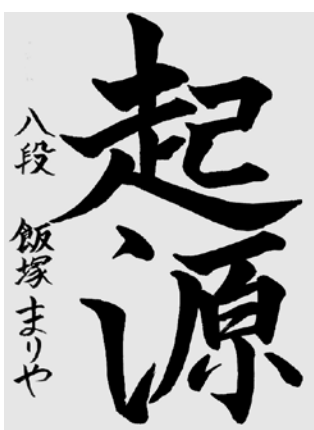 起源
八段 飯塚まりや